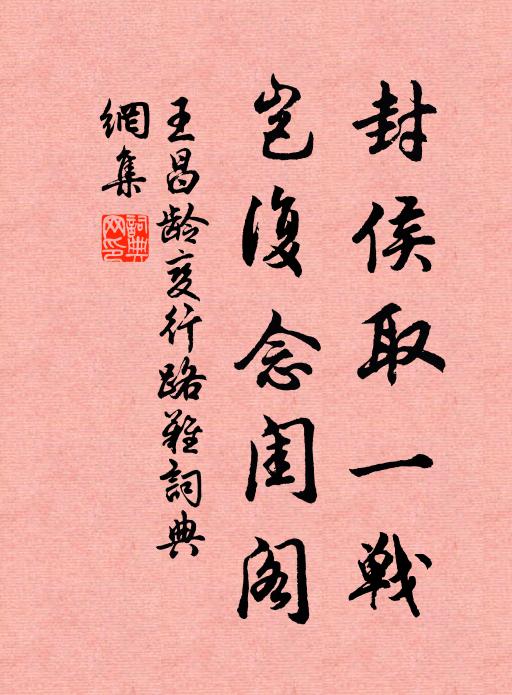 封侯取一戰
豈復念閨阁
王昌龄变行路難詞典
網集
詞典
网印